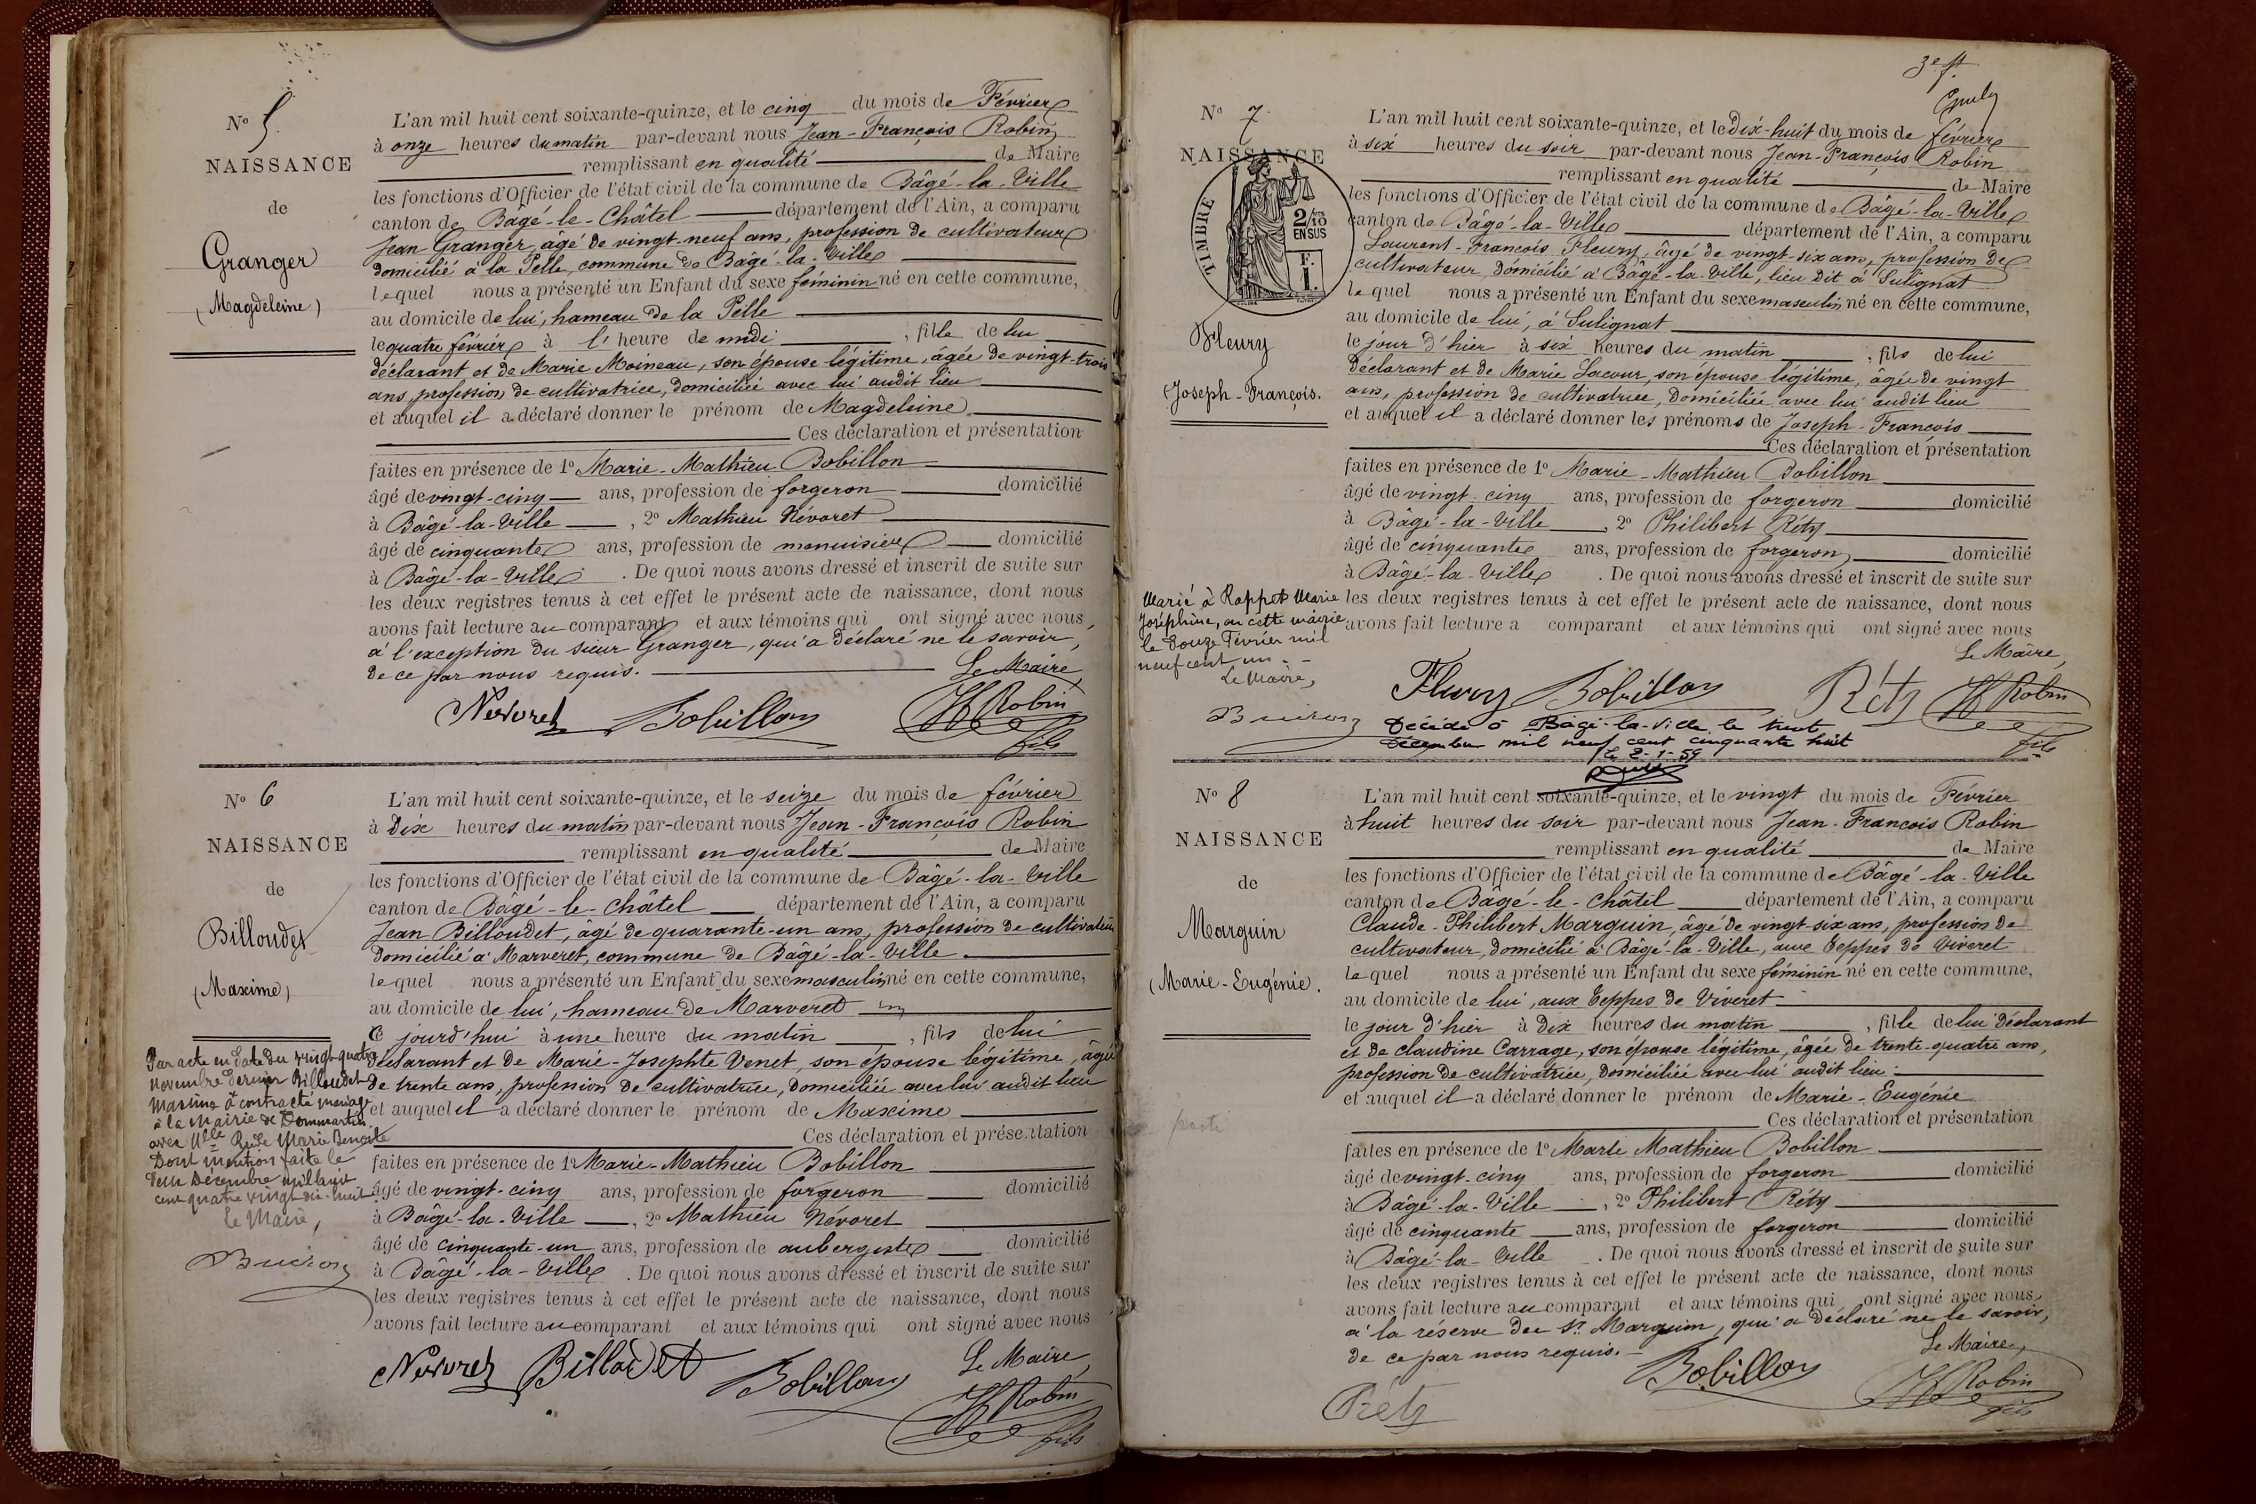 N° 5
NAISSANCE
de
Granger
(Magdeleine)
L'an mil huit cent soixante-quinze, et le cinq du mois de Février
à onze heures du matin par-devant nous Jean-François Robin
remplissant en qualité de Maire
les fonctions d'Officier de l'état civil de la commune de Bâgé-la-Ville
canton de Bâgé-le-Châtel département de l'Ain, a comparu
Jean Granger, âgé de vingt-neuf ans, profession de cultivateur
domicilié à la Pelle, commune de Bâgé-la-Ville
lequel nous a présenté un Enfant du sexe féminin né en cette commune,
au domicile de lui, hameau de la Pelle
le quatre février à l'heure de midi, fille de lui
déclarant et de Marie Moineau, son épouse légitime, âgée de vingt-trois
ans, profession de cultivatrice, domiciliée avec lui audit lieu
et auquel il a déclaré donner le prénom de Magdeleine
Ces déclaration et présentation
faites en présence de 1° Marie-Mathieu Bobillon
âgé de vingt-cinq ans, profession de forgeron domicilié
à Bâgé-la-Ville, 2° Mathieu Névoret
âgé de cinquante ans, profession de menuisier domicilié
à Bâgé-la-Ville. De quoi nous avons dressé et inscrit de suite sur
les deux registres tenus à cet effet le présent acte de naissance, dont nous
avons fait lecture au comparant et aux témoins qui ont signé avec nous,
à l'exception du sieur Granger, qui a déclaré ne le savoir,
de ce par nous requis.
Le Maire,
Névoret Bobillon Robin
fils
N° 6
NAISSANCE
de
Billoudet
(Maxime)
L'an mil huit cent soixante-quinze, et le seize du mois de février
à dix heures du matin par-devant nous Jean-François Robin
remplissant en qualité de Maire
les fonctions d'Officier de l'état civil de la commune de Bâgé-la-Ville
canton de Bâgé-le-Châtel département de l'Ain, a comparu
Jean Billoudet, âgé de quarante-un ans, profession de cultivateur
domicilié à Marveret, commune de Bâgé-la-Ville
lequel nous a présenté un Enfant du sexe masculin né en cette commune,
au domicile de lui, hameau de Marveret
ce jourd'hui à une heure du matin, fils de lui
déclarant et de Marie-Josephte Venet, son épouse légitime, âgée
de trente ans, profession de cultivatrice, domiciliée avec lui audit lieu
et auquel il a déclaré donner le prénom de Maxime
Ces déclaration et présentation
faites en présence de 1° Marie-Mathieu Bobillon
âgé de vingt-cinq ans, profession de forgeron domicilié
à Bâgé-la-Ville, 2° Mathieu Névoret
âgé de cinquante-un ans, profession de aubergiste domicilié
à Bâgé-la-Ville. De quoi nous avons dressé et inscrit de suite sur
les deux registres tenus à cet effet le présent acte de naissance, dont nous
avons fait lecture au comparant et aux témoins qui ont signé avec nous
Le Maire,
Névoret Billodet Bobillon Robin
fils
Par acte en date du vingt-quatre
novembre dernier Billoudet
Maxime a contracté mariage
à la Mairie de Dommartin
avec Melle Marie Benoite
Dont mention faite le
Décembre mil huit
cent quatre vingt dix-huit.
Le Maire,
Buiron
3e ft
N° 7
NAISSANCE
TIMBRE
2/10
EN SUS
F.
1.
Fleury
(Joseph-François.
L'an mil huit cent soixante-quinze, et le Dix-huit du mois de février
à six heures du soir par-devant nous Jean-François Robin
remplissant en qualité de Maire
les fonctions d'Officier de l'état civil de la commune de Bâgé-la-Ville
canton de Bâgé-la-Ville département de l'Ain, a comparu
Laurent-François Fleury, âgé de vingt-six ans, profession de
cultivateur, domicilié à Bâgé-la-Ville, lieu dit à Sulignat
lequel nous a présenté un Enfant du sexe masculin né en cette commune,
au domicile de lui, à Sulignat
le jour d'hier à six heures du matin, fils de lui
déclarant et de Marie Lacour, son épouse légitime, âgée de vingt
ans, profession de cultivatrice, domiciliée avec lui audit lieu
et auquel il a déclaré donner les prénoms de Joseph-François
Ces déclaration et présentation
faites en présence de 1° Marie-Mathieu Bobillon
âgé de vingt-cinq ans, profession de forgeron domicilié
à Bâgé-la-Ville, 2° Philibert Réty
âgé de cinquante ans, profession de forgeron domicilié
à Bâgé-la-Ville. De quoi nous avons dressé et inscrit de suite sur
les deux registres tenus à cet effet le présent acte de naissance, dont nous
avons fait lecture a comparant et aux témoins qui ont signé avec nous
Le Maire,
Fleury Bobillon Réty Robin
fils
Marié à Rappet Marie
Joséphine, en cette mairie
le douze Février mil
neuf cent un.
Le Maire,
Buiron
Décédé à Bâgé-la-Ville le trente
décembre mil neuf cent cinquante huit
le 2-1-59
N° 8
NAISSANCE
de
Marguin
(Marie-Eugénie.)
L'an mil huit cent soixante-quinze, et le vingt du mois de Février
à huit heures du soir par-devant nous Jean-François Robin
remplissant en qualité de Maire
les fonctions d'Officier de l'état civil de la commune de Bâgé-la-Ville
canton de Bâgé-le-Châtel département de l'Ain, a comparu
Claude-Philibert Marguin, âgé de vingt-six ans, profession de
cultivateur, domicilié à Bâgé-la-Ville, aux Teppes de Viveret
lequel nous a présenté un Enfant du sexe féminin né en cette commune,
au domicile de lui, aux Teppes de Viveret
le jour d'hier à dix heures du matin, fille de lui déclarant
et de Claudine Carrage, son épouse légitime, âgée de trente-quatre ans,
profession de cultivatrice, domiciliée avec lui audit lieu
et auquel il a déclaré donner le prénom de Marie-Eugénie
Ces déclaration et présentation
faites en présence de 1° Marie Mathieu Bobillon
âgé de vingt-cinq ans, profession de forgeron domicilié
à Bâgé-la-Ville, 2° Philibert Réty
âgé de cinquante ans, profession de forgeron domicilié
à Bâgé-la-Ville. De quoi nous avons dressé et inscrit de suite sur
les deux registres tenus à cet effet le présent acte de naissance, dont nous
avons fait lecture au comparant et aux témoins qui ont signé avec nous,
à la réserve du Sr. Marguin, qui a déclaré ne le savoir,
de ce par nous requis.
Le Maire,
Réty Bobillon Robin
fils